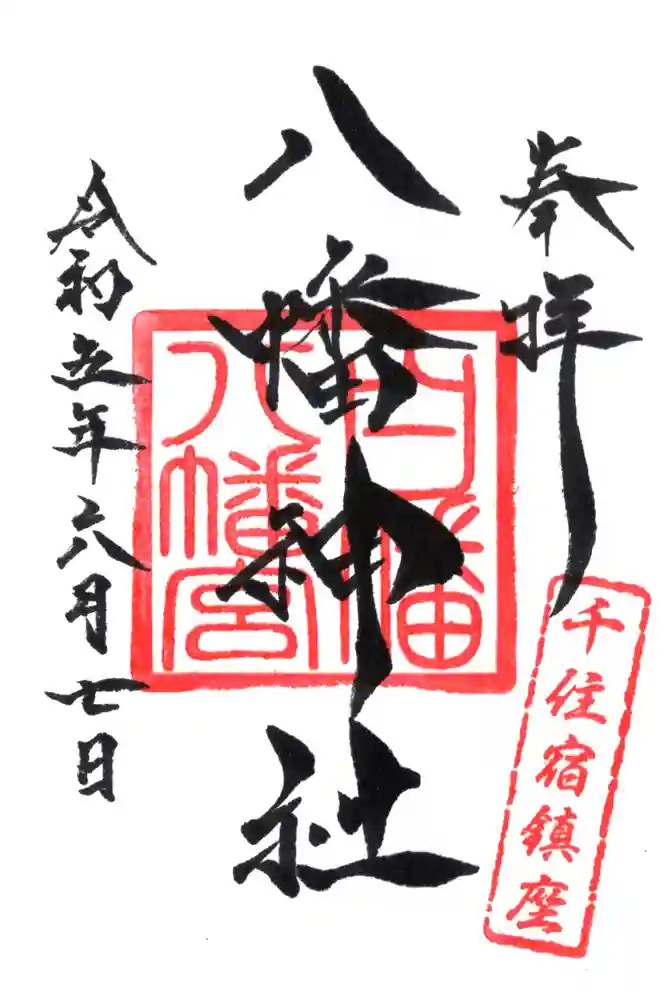 奉拝
千住宿鎮座
八幡神社
白幡
八幡宮
令和五年六月七日